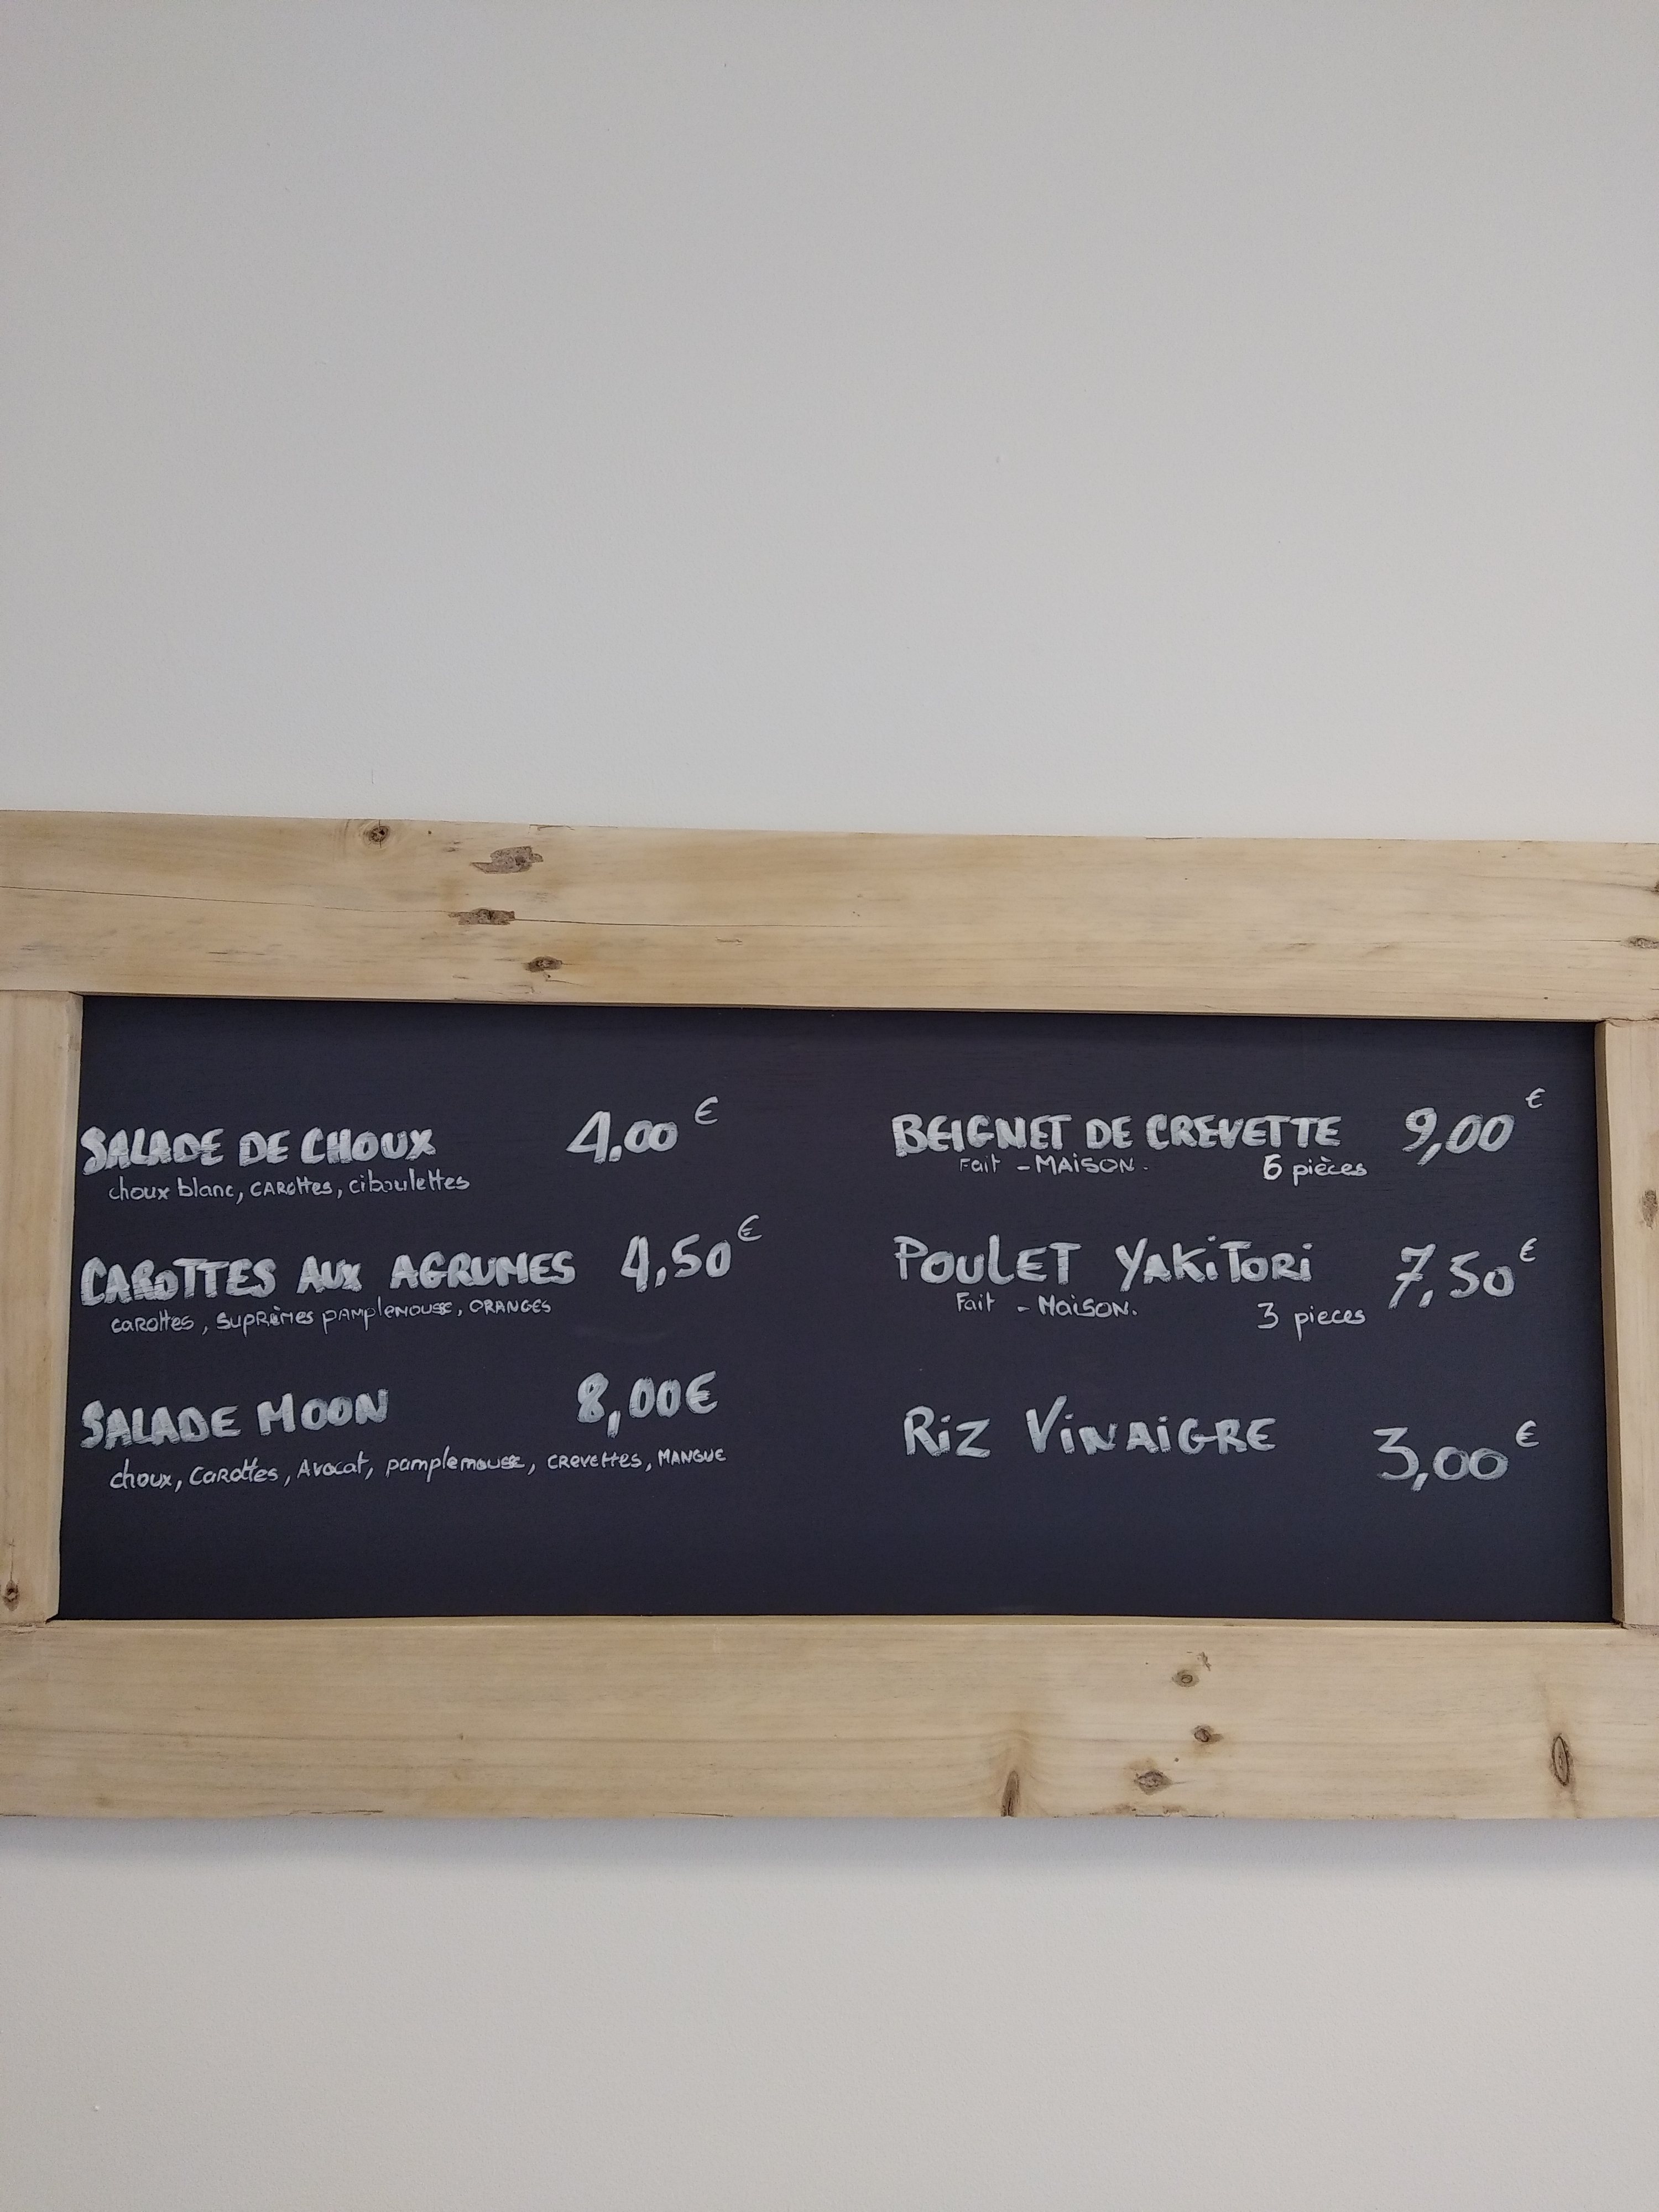 SALADE DE CHOUX 4,00 €
choux blanc, CAROttes, ciboulettes
CAROTTES AUX AGRUMES 4,50 €
carottes, SUPRÈMES PAMPlemousse, ORANGES
SALADE MOON 8,00€
choux, CaRottes, Avocat, pamplemousse, CREVEttes, MANGUE
BEIGNET DE CREVETTE 9,00 €
Fait - MAiSON. 6 pièces
POULET YAKiTORi 7,50 €
Fait - MaiSON. 3 pieces
RiZ ViNAiGRE 3,00 €